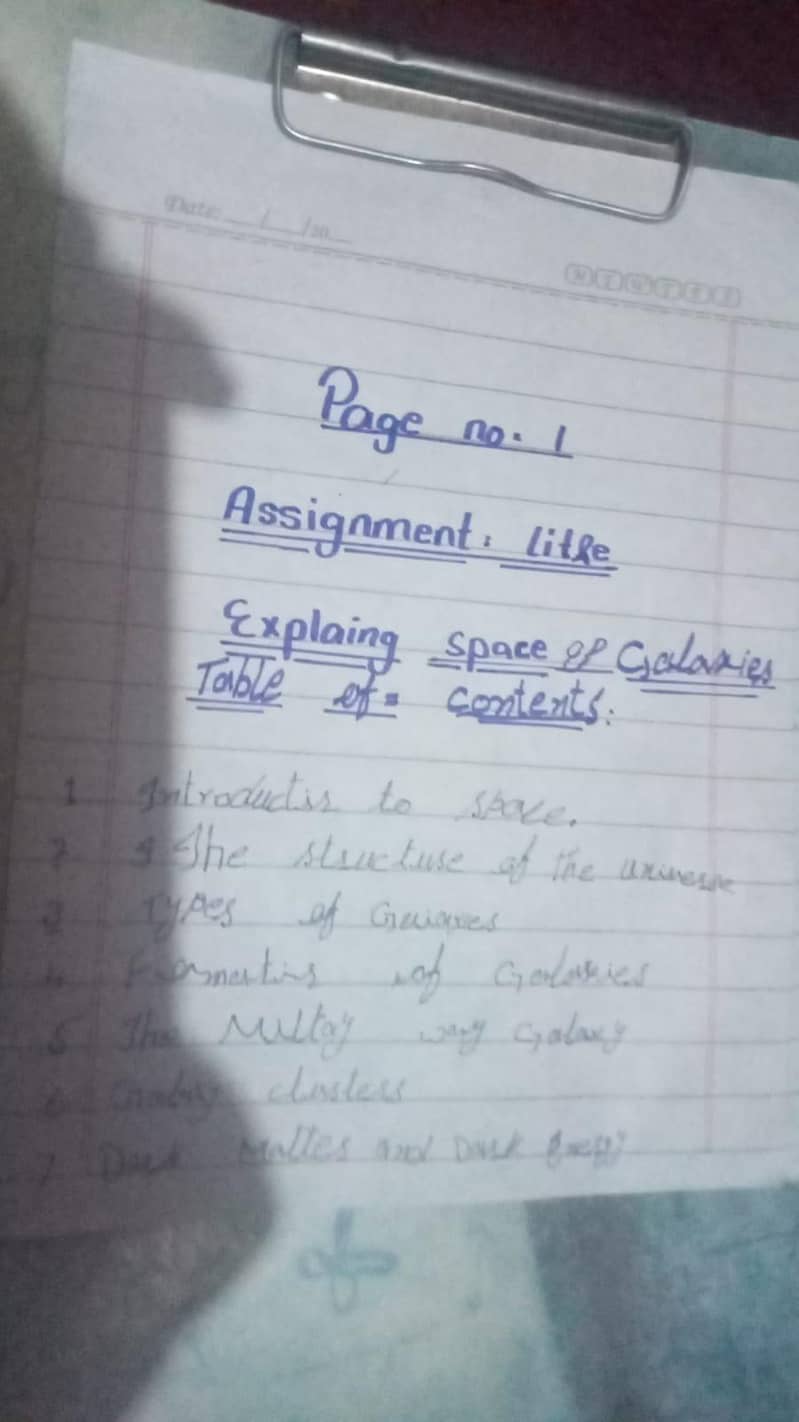 Date: __/__/20__
M T W T F S
Page no. 1
Assignment: litle
Explaing space of Galaxies
Table of = contents:
1 Introductis to space.
2 The structuse of the universe
3 Types of
4 of Galaxies
5 The way Galaxy
6 Galaxy clusters
7 Dark Mattes and Dark